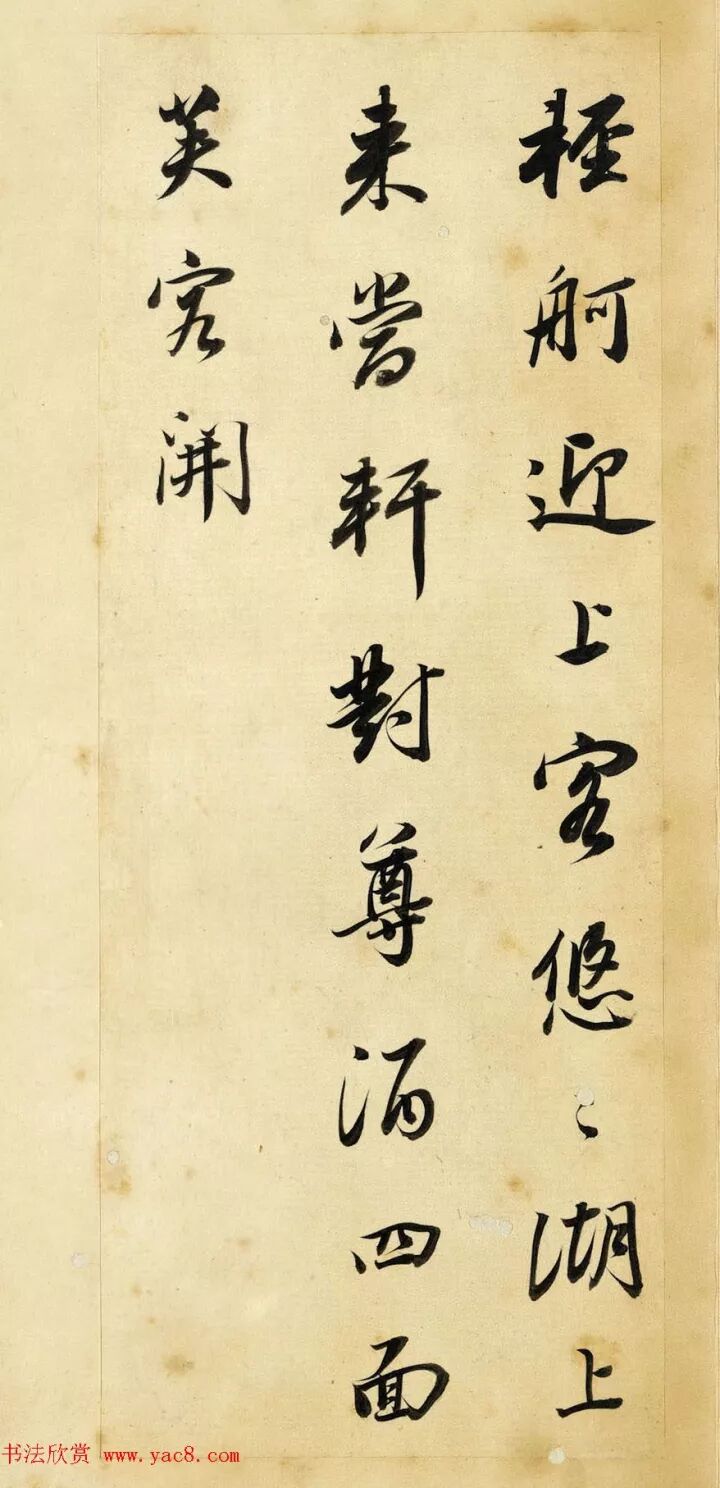 輕舸迎上客悠〻湖上
来當軒對尊酒四面
芙容開
书法欣赏 www.yac8.com